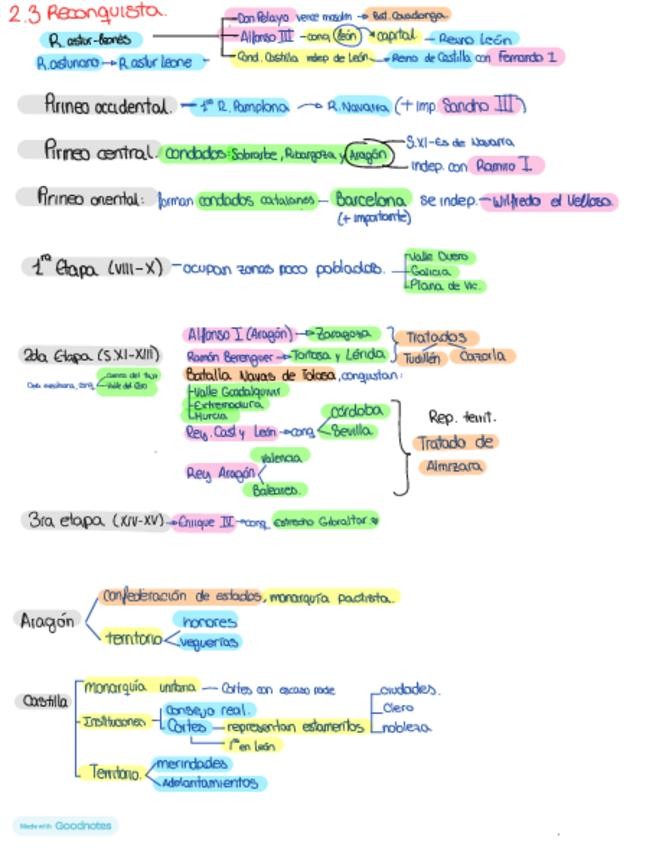 2.3 Reconquista.
Don Pelayo vence musulm → Bat. Covadonga
R. astur-leonés
Alfonso III - conq León → capital - Reino León
R. asturiano → R. astur leone - Cond. Castilla indep de León → Reino de Castilla con Fernando I
Pirineo occidental. - 1º R. Pamplona → R. Navarra (+ imp. Sancho III)
S.XI - Es de Navarra
Pirineo central. condados: Sobrarbe, Ribargoza y Aragón
indep. con Ramiro I.
Pirineo oriental: forman condados catalanes - Barcelona se indep. - Wilfredo el Velloso.
(+ importante)
Valle Duero
1ra Etapa (VIII-X) - ocupan zonas poco pobladas. Galicia
Plana de Vic.
Alfonso I (Aragón) → Zaragoza
Tratados
2da Etapa (S.XI-XIII) Ramón Berenguer → Tortosa y Lérida
Tudillén Cazorla
Batalla Navas de Tolosa, conquistan:
Valle Guadalquivir
Extremadura
Murcia
Córdoba
Rey. Cast y León → conq Sevilla
Rep. territ.
Tratado de
Almizara
Valencia
Rey Aragón
Baleares.
3ra etapa (XIV-XV) → Enrique IV → conq. estrecho Gibraltar
Confederación de estados, monarquía pactista.
Aragón
honores
territorio
veguerías
Castilla
monarquía unitaria - Cortes con escaso pode
ciudades.
Consejo real.
Clero
Instituciones
Cortes - representan estamentos
nobleza
1as en León
merindades
Territorio.
Adelantamientos
Made with Goodnotes